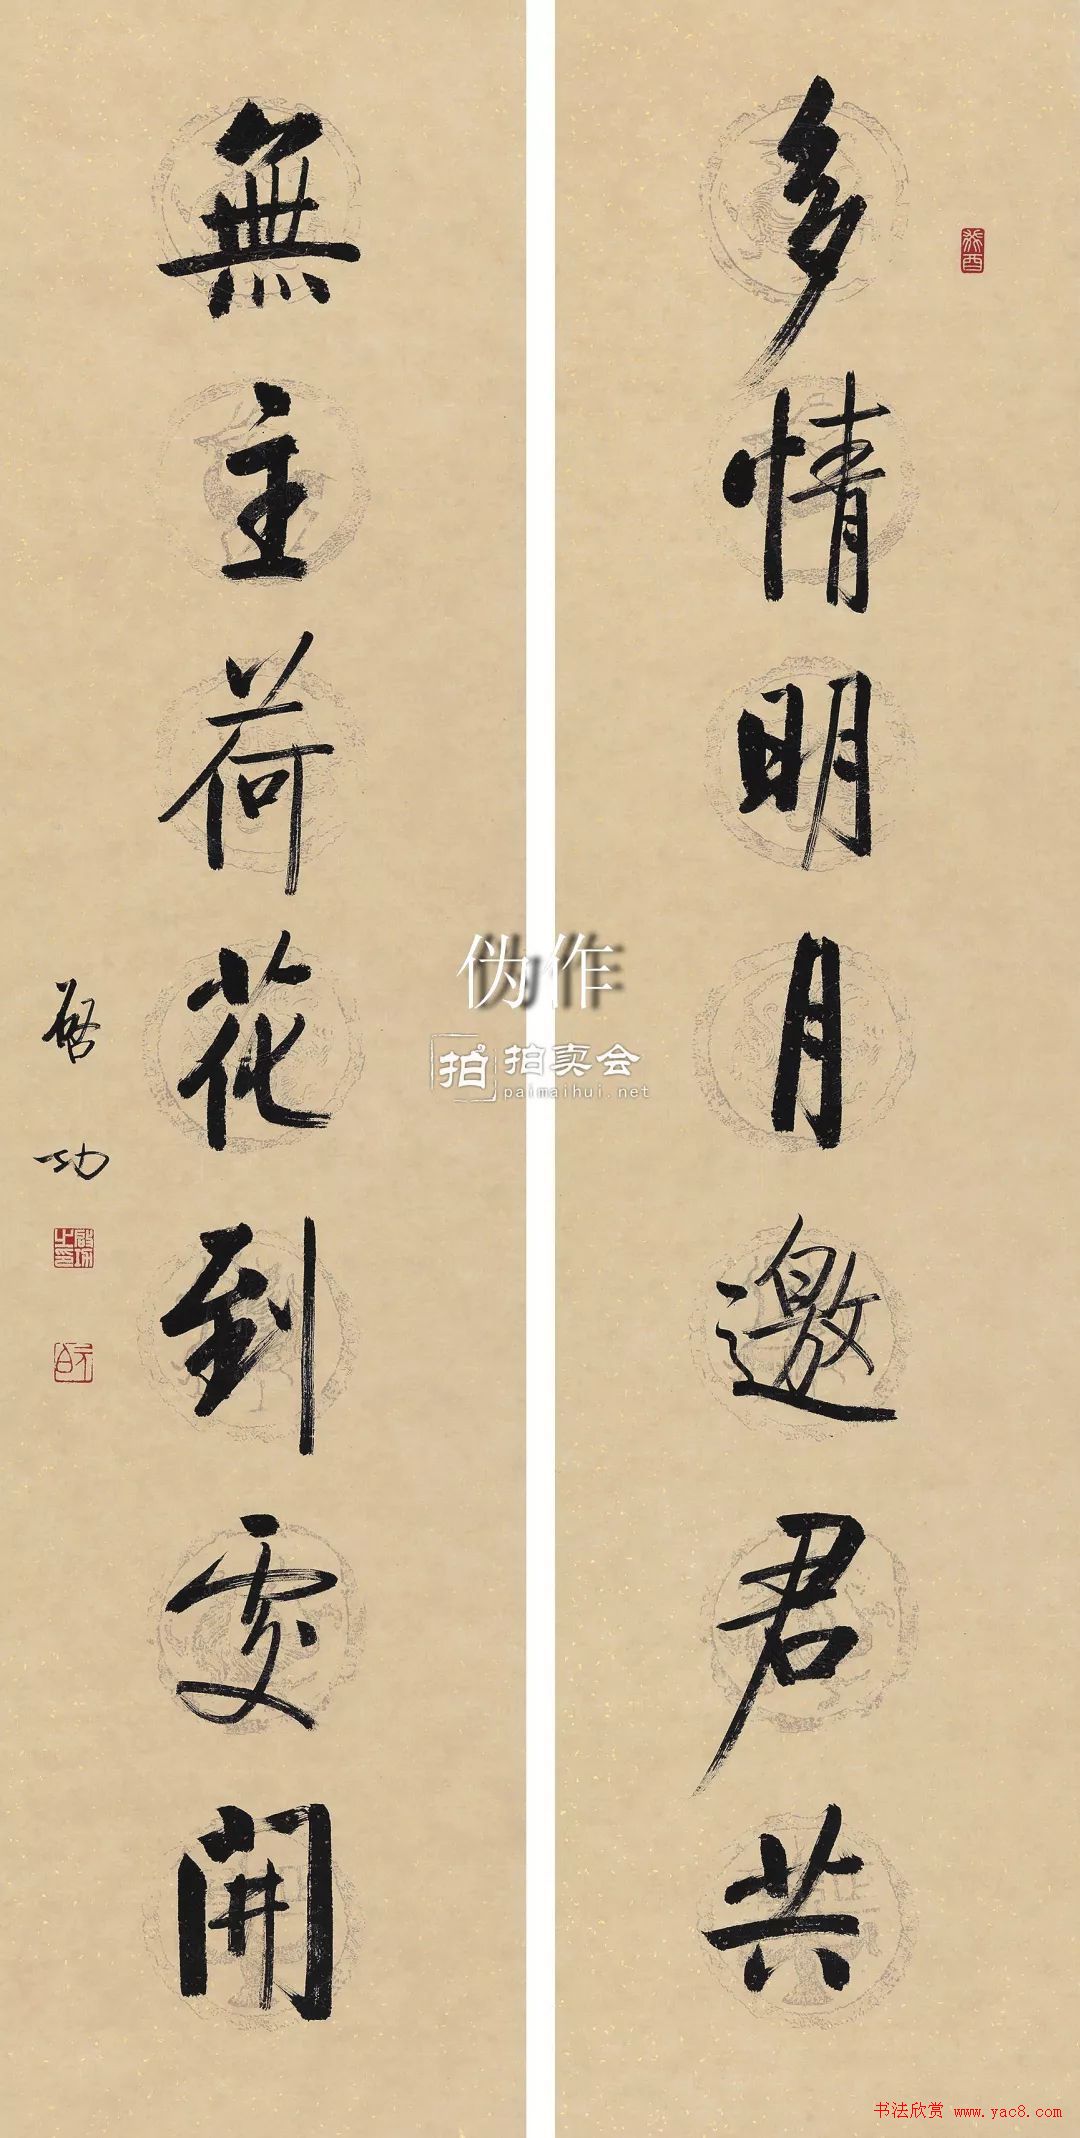 多情明月邀君共
無主荷花到處開
啓功
癸酉
啓功之印
元白
伪作
拍 拍卖会
paimaihui.net
书法欣赏 www.yac8.com